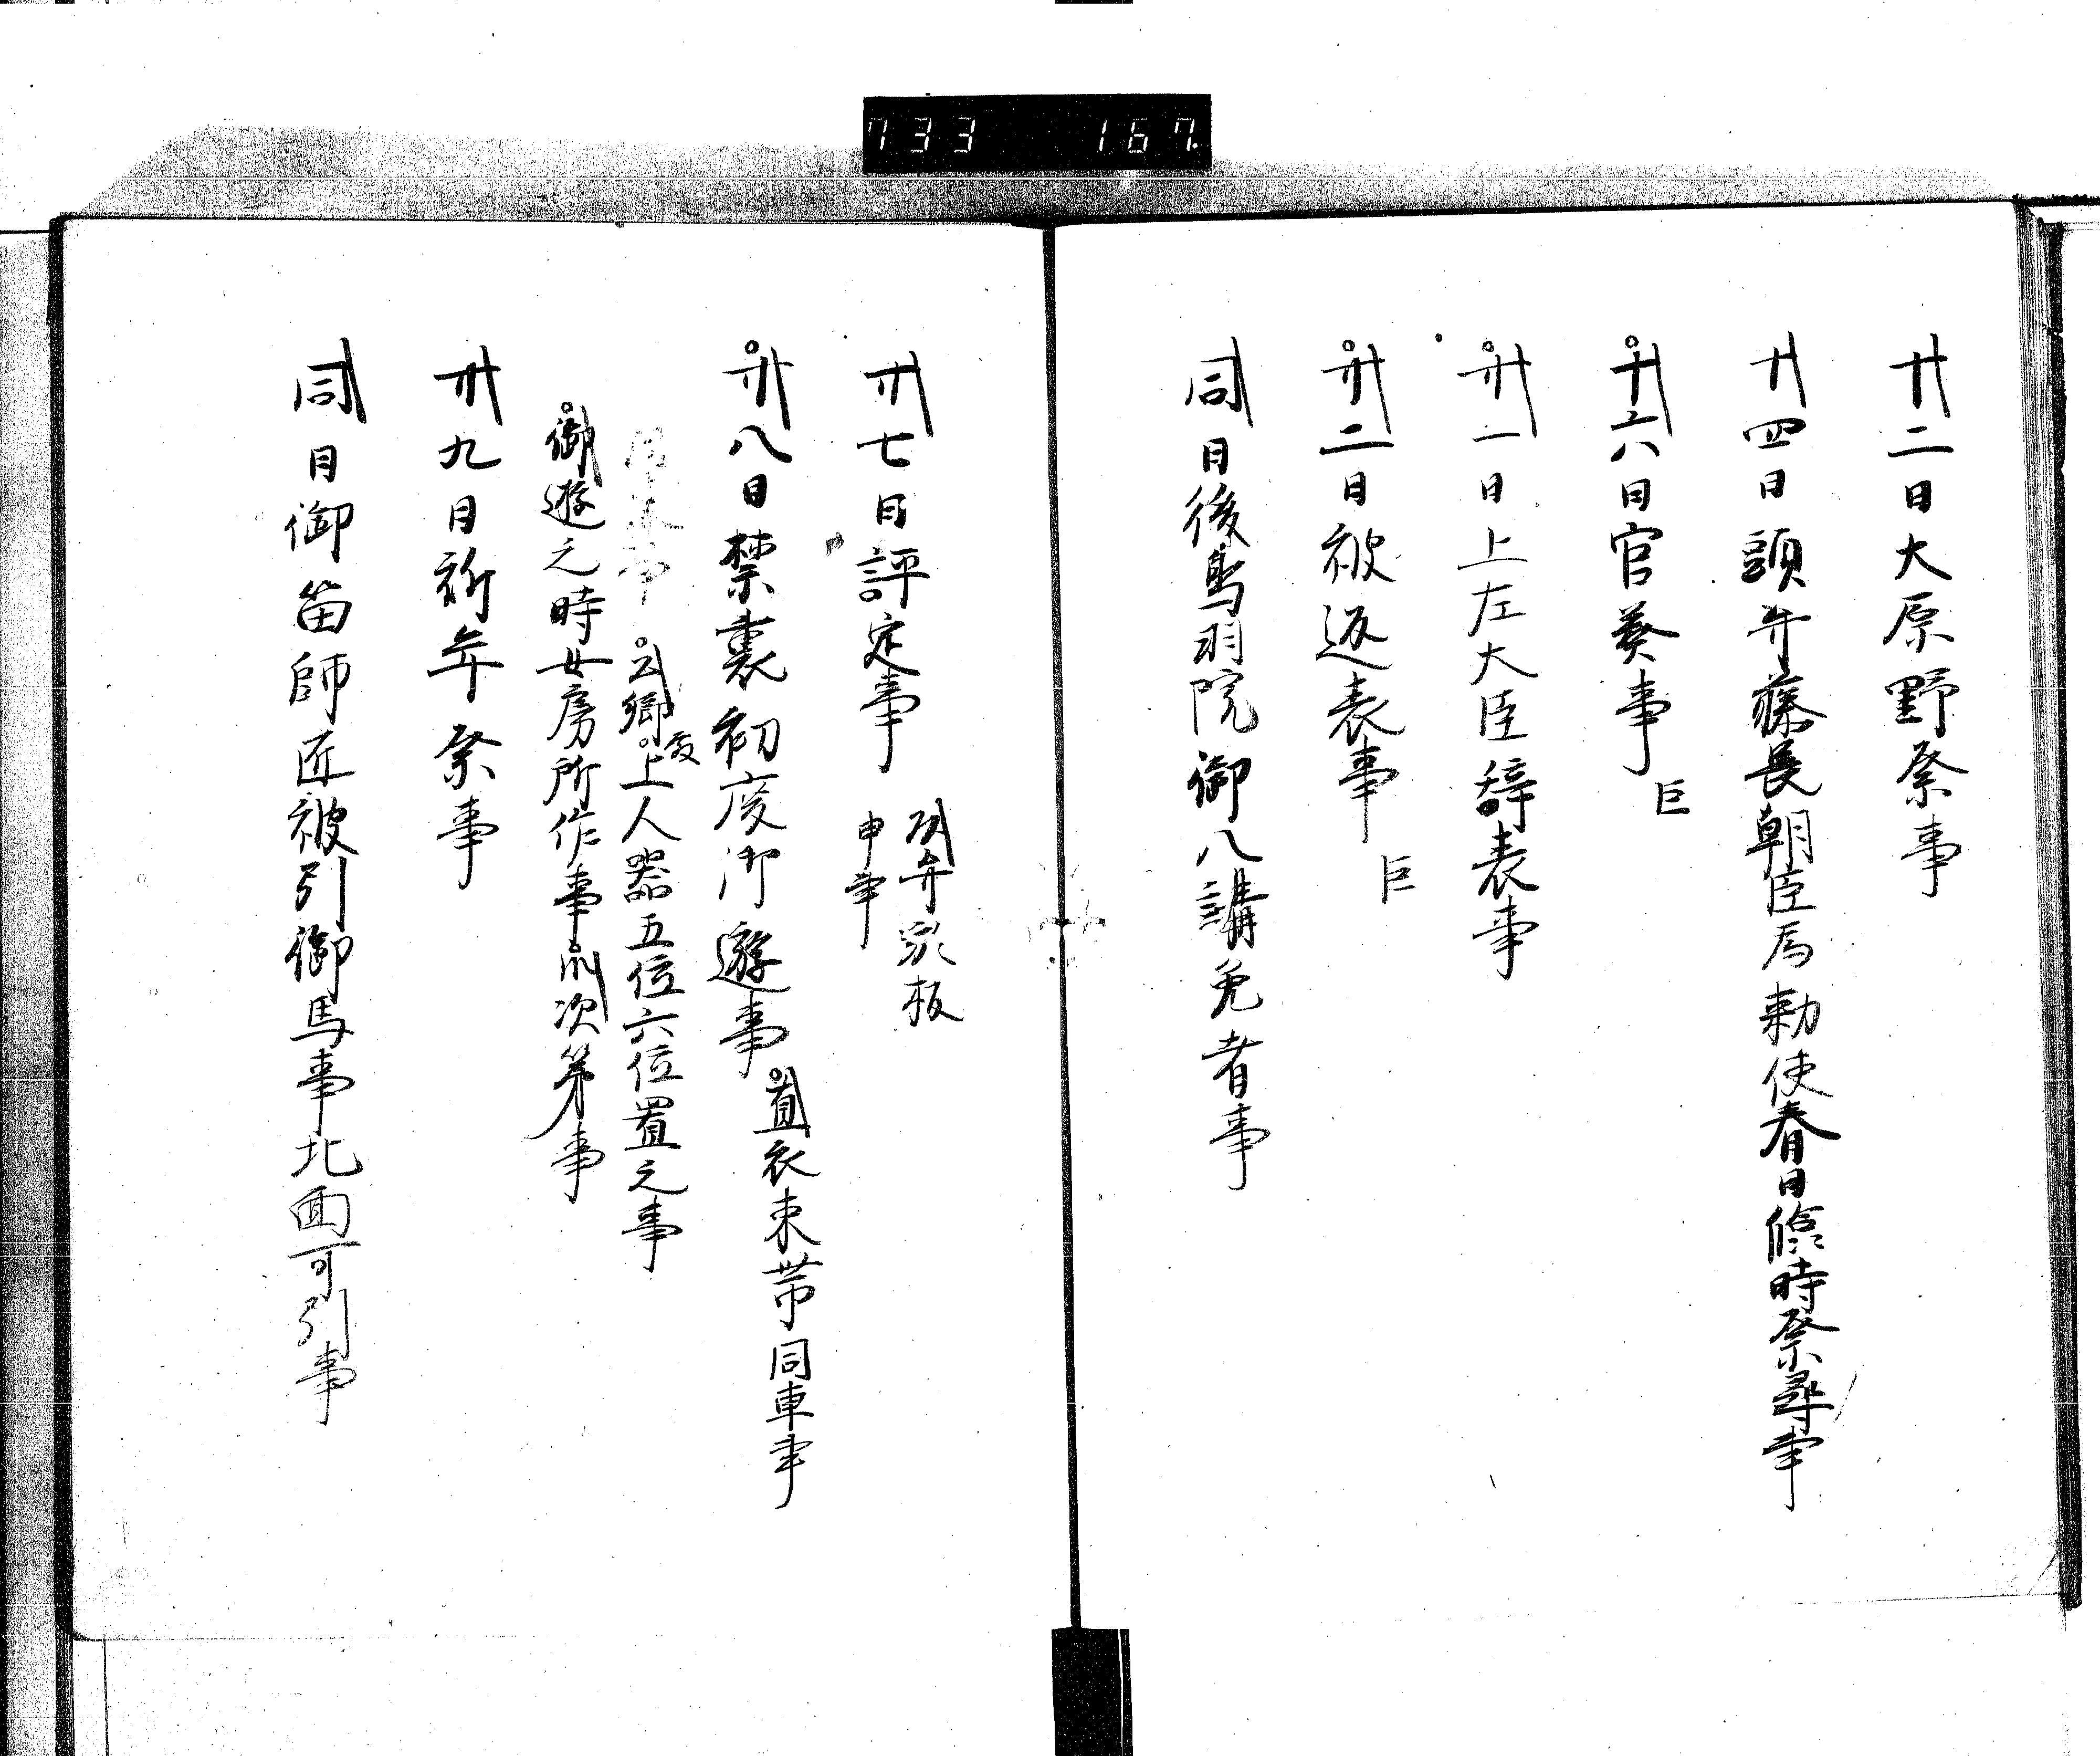 733 167
十二日大原野祭事
廿四日頭弁藤長朝臣為勅使春日臨時祭尋事
十六日官奏事 臣
廿一日上左大臣辞表事
廿二日被返表事 臣
同日後鳥羽院御八講免者事
廿七日評定事
弁 板
申事
廿八日禁裏初度御遊事
直衣束帯同車事
公卿 上人器五位六位置之事
御遊之時女房所作事 次第事
廿九日祈年祭事
同日御笛師匠被引御馬事北面可引事